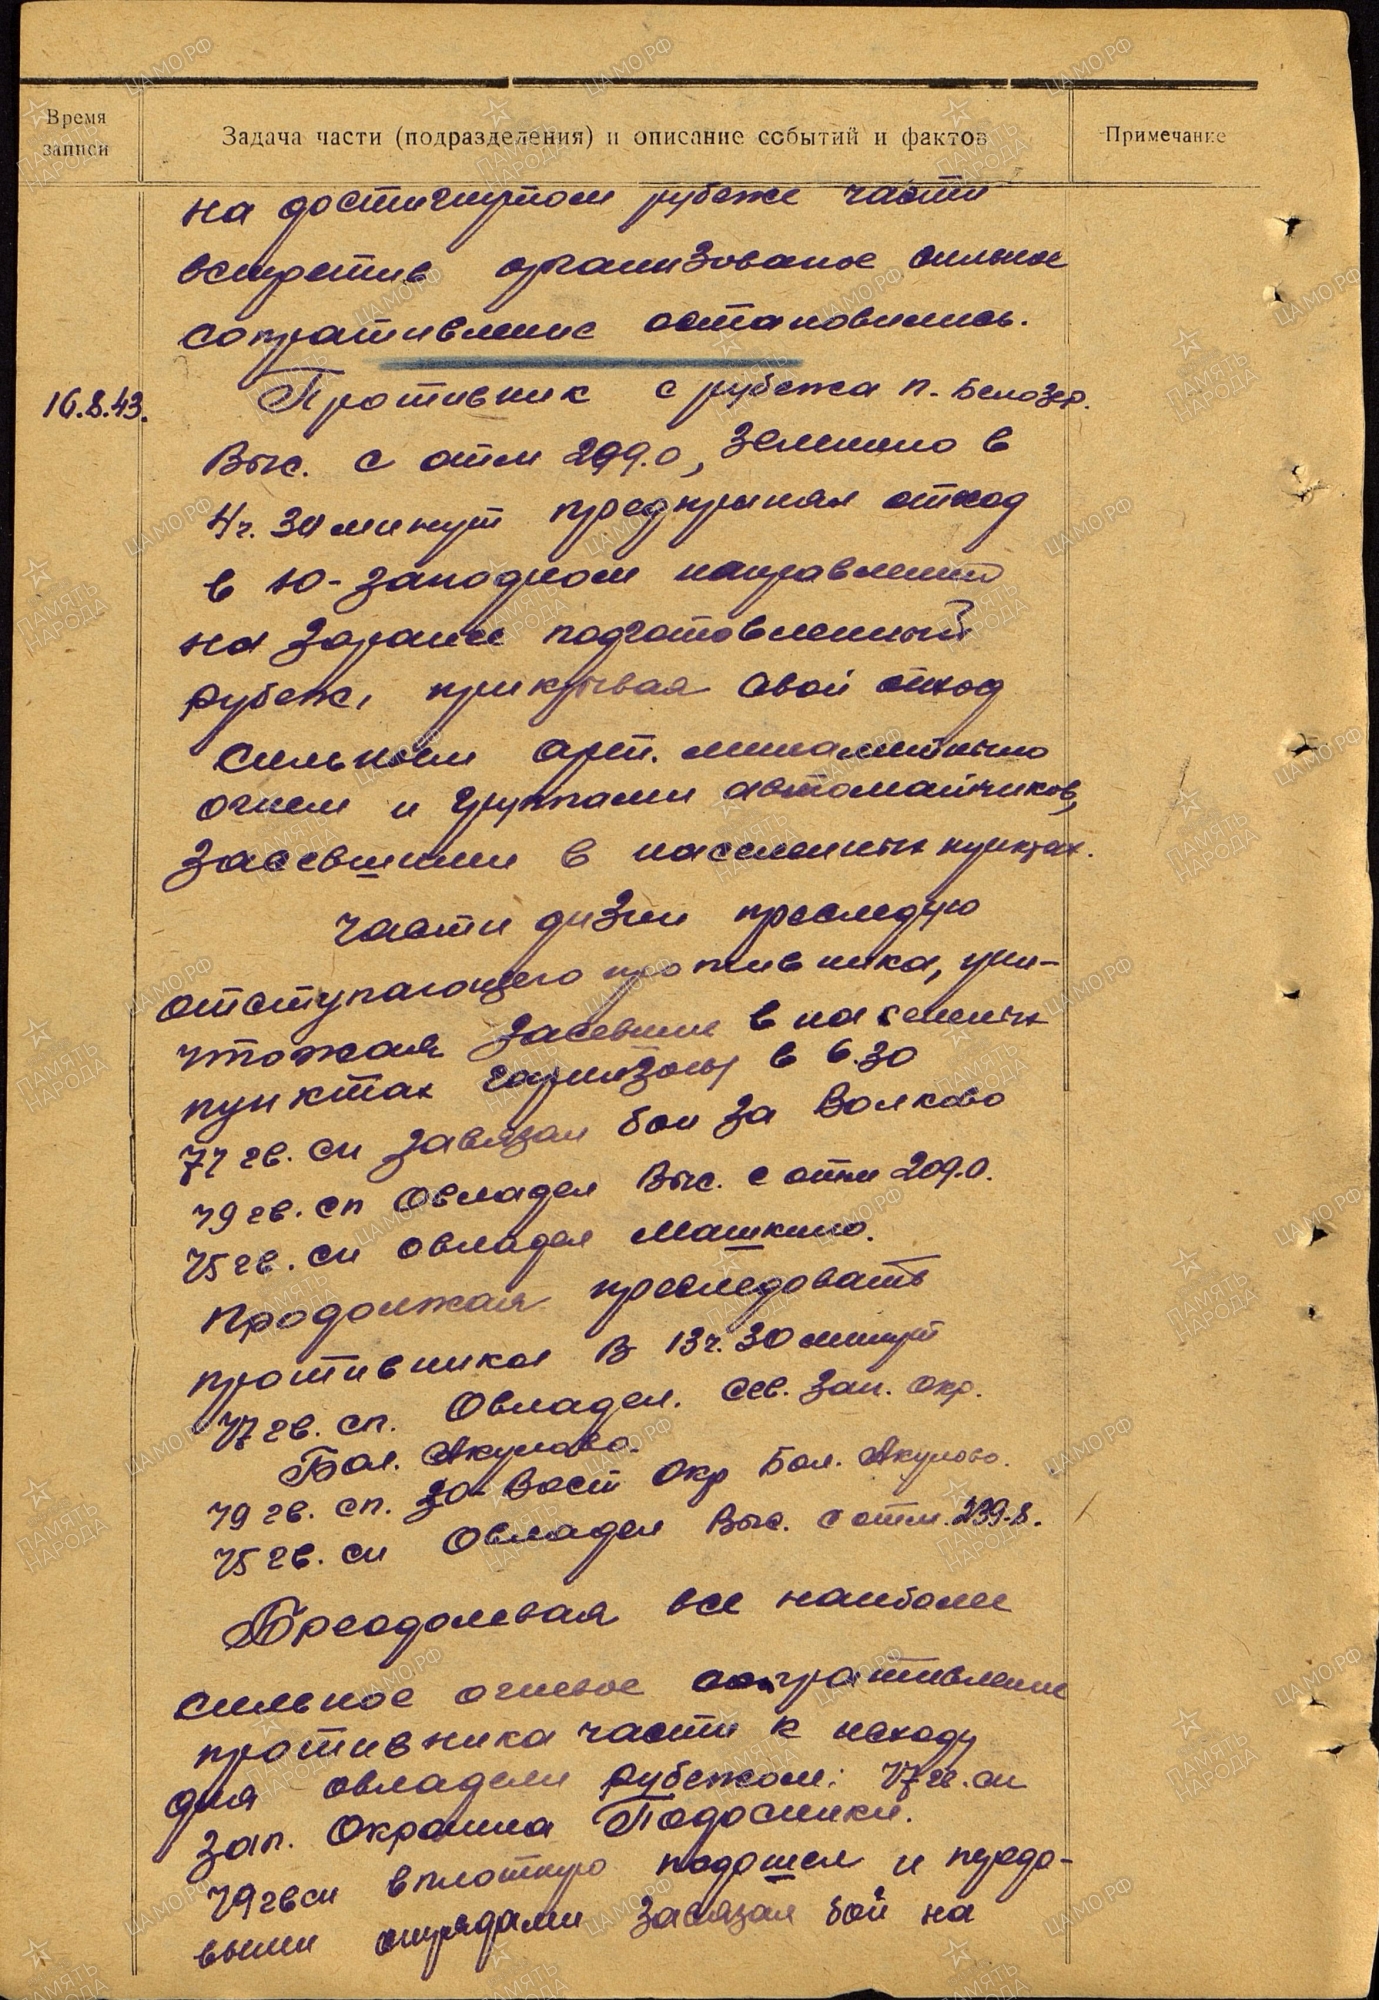 Время записи
Задача части (подразделения) и описание событий и фактов
Примечание
на достигнутом рубеже части
встретив организованое сильное
сопративление остановились.
16.8.43. Противник с рубежа п. Белозер.
Выс. с отм 299.0, Землино в
4ч. 30 минут предпринял отход
в Ю-западном направлении
на заранее подготовленный
рубеж, прикрывая свой отход
сильным арт. минаметным
огнем и группами автоматчиков,
засевшими в населенных пунктах.
Части дизии преследую
отступающего противника, уни-
чтожая засевшие в населеных
пунктах гарнизоны в 6.30
77 гв. сп завязал бои за Волково
79 гв. сп Овладел Выс. с отм 209.0.
75 гв. сп овладел Машкино.
Продолжая преследовать
противника В 13ч. 30 минут
77 гв. сп. Овладел. Сев. Зап. окр.
Бол. Акулово.
79 гв. сп. Ю-Вост Окр Бол. Акулово.
75 гв. сп Овладел Выс. с отм. 239.8.
Преодолевая все наиболе
сильное огневое сопративление
противника части к исходу
дня овладели рубежом: 77 гв. сп
зап. Окраина Подосинки.
79 гв сп вплотную подошел и передо-
выми отрядами завязал бой на